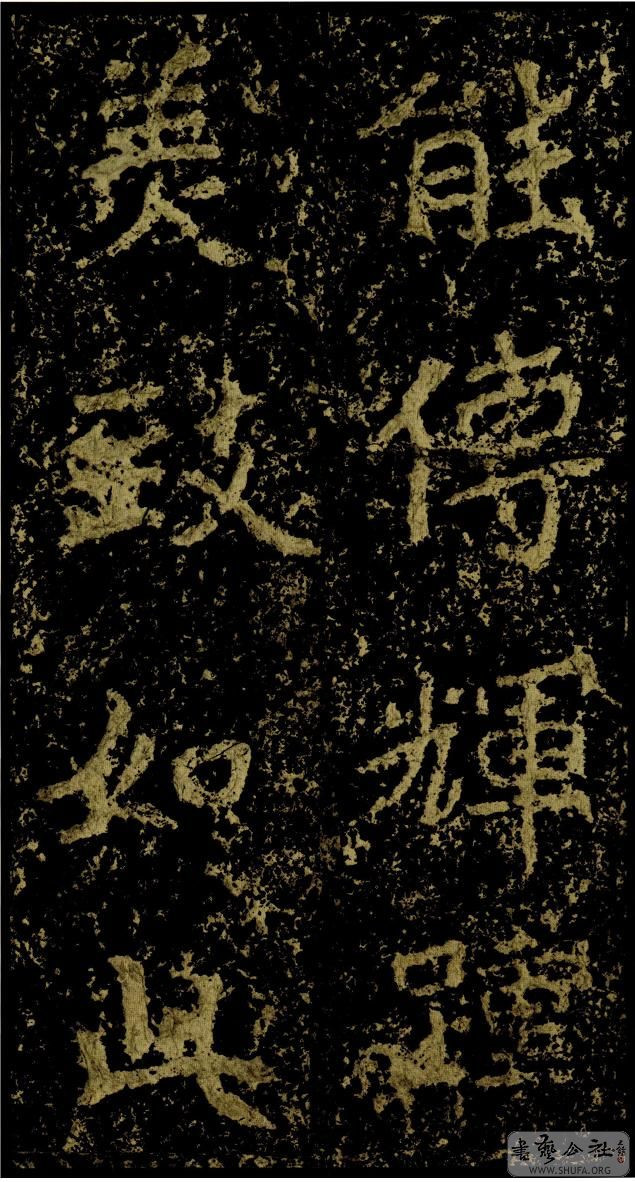 能傳輝踵
美致如此
書藝公社
WWW.SHUFA.ORG